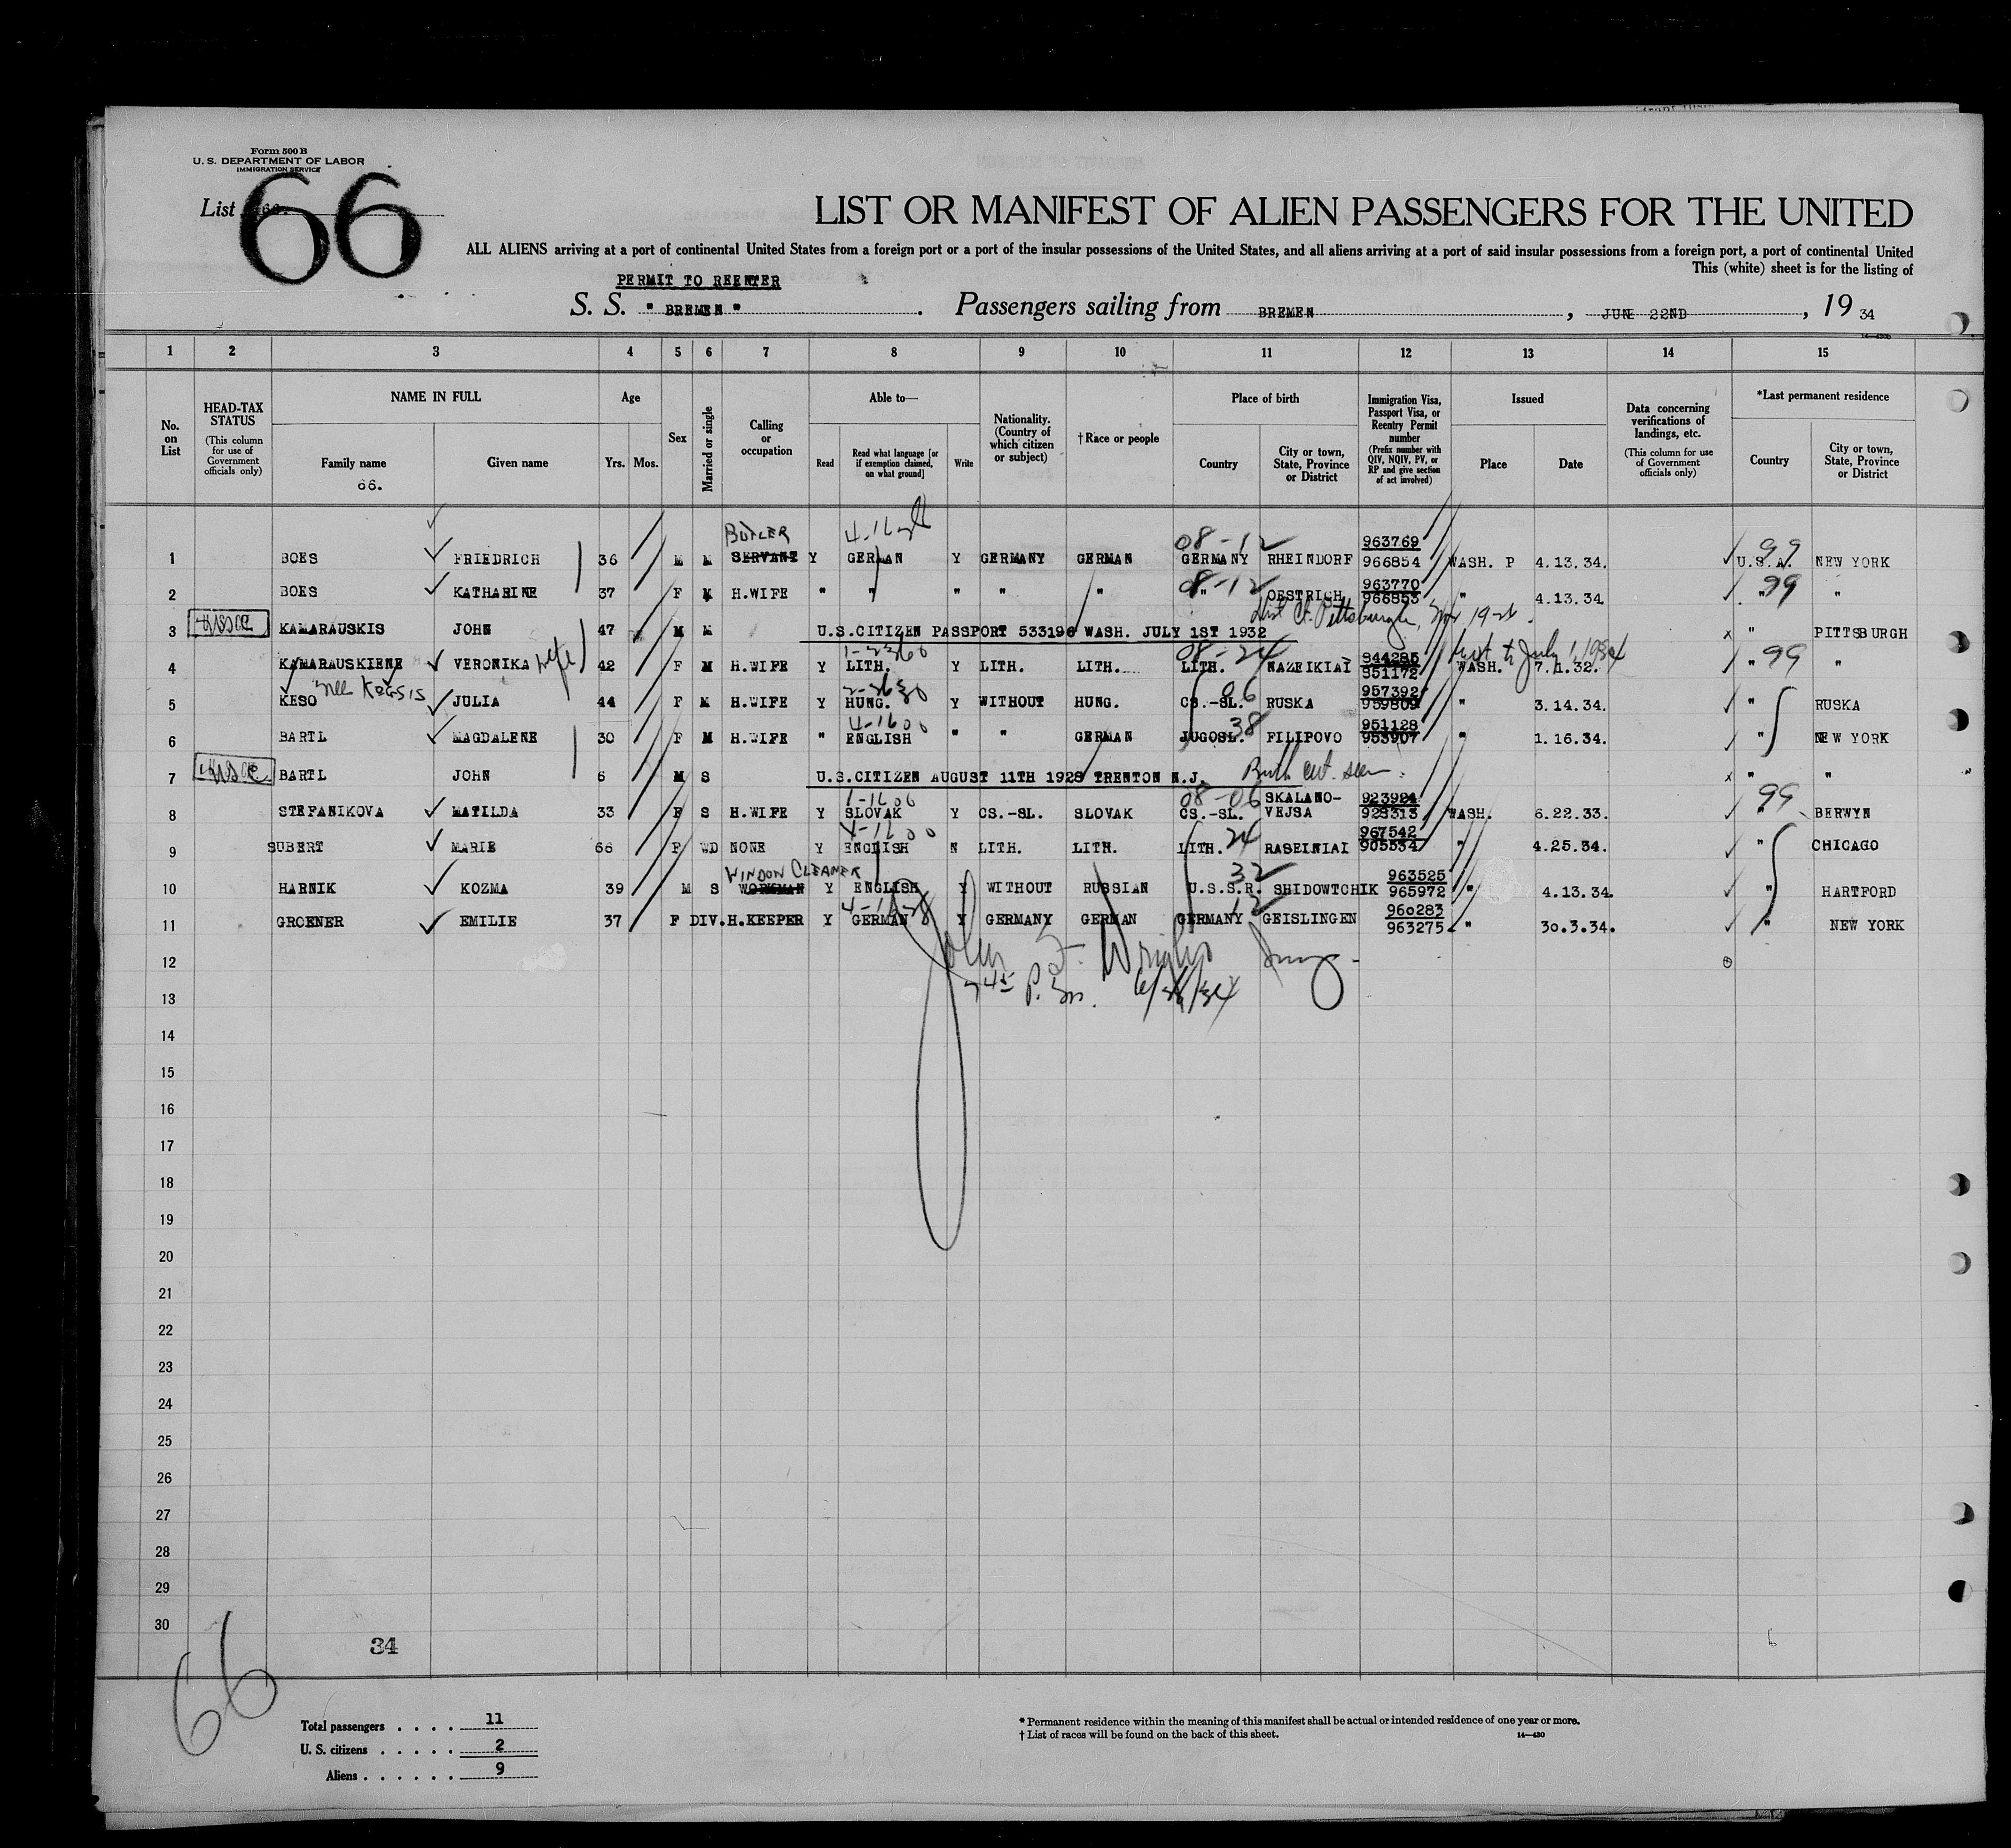 Form 500 B
U. S. DEPARTMENT OF LABOR
IMMIGRATION SERVICE
List 66
LIST OR MANIFEST OF ALIEN PASSENGERS FOR THE UNITED
ALL ALIENS arriving at a port of continental United States from a foreign port or a port of the insular possessions of the United States, and all aliens arriving at a port of said insular possessions from a foreign port, a port of continental United
This (white) sheet is for the listing of
PERMIT TO REENTER
S. S. " BREMEN " . Passengers sailing from BREMEN , JUNE 22ND , 19 34
1 2 3 4 5 6 7 8 9 10 11 12 13 14 15
No. on List
HEAD-TAX STATUS
(This column for use of Government officials only)
NAME IN FULL
Family name
66.
Given name
Age
Yrs. Mos.
Sex
Married or single
Calling or occupation
Able to—
Read
Read what language [or if exemption claimed, on what ground]
Write
Nationality. (Country of which citizen or subject)
†Race or people
Place of birth
Country
City or town, State, Province or District
Immigration Visa, Passport Visa, or Reentry Permit number
(Prefix number with QIV, NQIV, PV, or RP and give section of act involved)
Issued
Place
Date
Data concerning verifications of landings, etc.
(This column for use of Government officials only)
*Last permanent residence
Country
City or town, State, Province or District
BUTLER 08-12 963769 99
1 BOES FRIEDRICH 36 M M SERVANT Y GERMAN Y GERMANY GERMAN GERMANY RHEINDORF 966854 WASH. P 4.13.34. U.S.A. NEW YORK
08-12 963770 99
2 BOES KATHARINE 37 F M H.WIFE " " " " " " OESTRICH 966853 " 4.13.34 " "
3 KAMARAUSKIS JOHN 47 M M U.S.CITIZEN PASSPORT 533196 WASH. JULY 1ST 1932 " PITTSBURGH
Pittsburgh,
08-24 944285 to July 1, 1934 99
4 KAMARAUSKIENE VERONIKA wife 42 F M H.WIFE Y LITH. Y LITH. LITH. LITH. NAZEIKIAI 851172 WASH. 7.1.32. " "
06 957392
5 KESO JULIA 44 F M H.WIFE Y HUNG. Y WITHOUT HUNG. CS.-SL. RUSKA 959809 " 3.14.34. " RUSKA
38 951128
6 BARTL MAGDALENE 30 F M H.WIFE " ENGLISH " " GERMAN JUGOSL. FILIPOVO 953907 " 1.16.34. " NEW YORK
7 BARTL JOHN 6 M S U.S.CITIZEN AUGUST 11TH 1928 TRENTON N.J. Birth cert. seen. " "
08-06 SKALANO- 923924 99
8 STEFANIKOVA MATILDA 33 F S H.WIFE Y SLOVAK Y CS.-SL. SLOVAK CS.-SL. VEJSA 928313 WASH. 6.22.33. " BERWYN
24 967542
9 SUBERT MARIE 66 F WD NONE Y ENGLISH N LITH. LITH. LITH. RASEINIAI 905334 " 4.25.34. " CHICAGO
WINDOW CLEANER 32 963525
10 HARNIK KOZMA 39 M S WORKMAN Y ENGLISH Y WITHOUT RUSSIAN U.S.S.R. SHIDOWTCHIK 965972 " 4.13.34. " HARTFORD
12 960283
11 GROENER EMILIE 37 F DIV. H.KEEPER Y GERMAN Y GERMANY GERMAN GERMANY GEISLINGEN 963275 " 30.3.34. " NEW YORK
12
13
14
15
16
17
18
19
20
21
22
23
24
25
26
27
28
29
30
34
66
Total passengers . . . . 11
U. S. citizens . . . . . 2
Aliens . . . . . . 9
* Permanent residence within the meaning of this manifest shall be actual or intended residence of one year or more.
† List of races will be found on the back of this sheet.
14—430